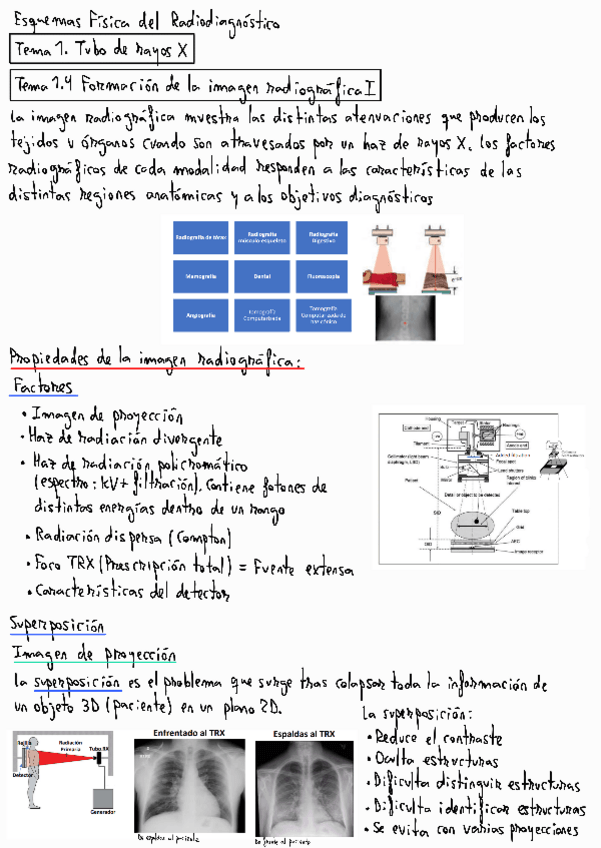 Esquemas Física del Radiodiagnóstico
Tema 1. Tubo de rayos X
Tema 1.4 Formación de la imagen radiográfica I
La imagen radiográfica muestra las distintas atenuaciones que producen los
tejidos u órganos cuando son atravesados por un haz de rayos X. Los factores
radiográficos de cada modalidad responden a las características de las
distintas regiones anatómicas y a los objetivos diagnósticos
Radiografía de tórax
Radiografía músculo esquelето
Radiografía Digestivo
Mamografía
Dental
Fluoroscopia
Angiografía
Tomografía Computarizada
Tomografía Computarizada de haz cónico
Propiedades de la imagen radiográfica:
Factores
• Imagen de proyección
• Haz de radiación divergente
• Haz de radiación policromático
(espectro: kV + filtración). Contiene fotones de
distintas energías dentro de un rango
• Radiación dispersa (Compton)
• Foco TRX (Prescripción total) = Fuente extensa
• Características del detector
Housing
Filament
Patient
Region of clinical interest
Detail or object to be detected
OID
Table top
Grid
AEC
Image receptor
Superposición
Imagen de proyección
La superposición es el problema que surge tras colapsar toda la información de
un objeto 3D (paciente) en un plano 2D.
Rejilla
Radiación Primaria
Tubo RX
Detector
Generador
Enfrentado al TRX
De espalda al paciente
Espaldas al TRX
De frente al paciente
La superposición:
• Reduce el contraste
• Oculta estructuras
• Dificulta distinguir estructuras
• Dificulta identificar estructuras
• Se evita con varias proyecciones